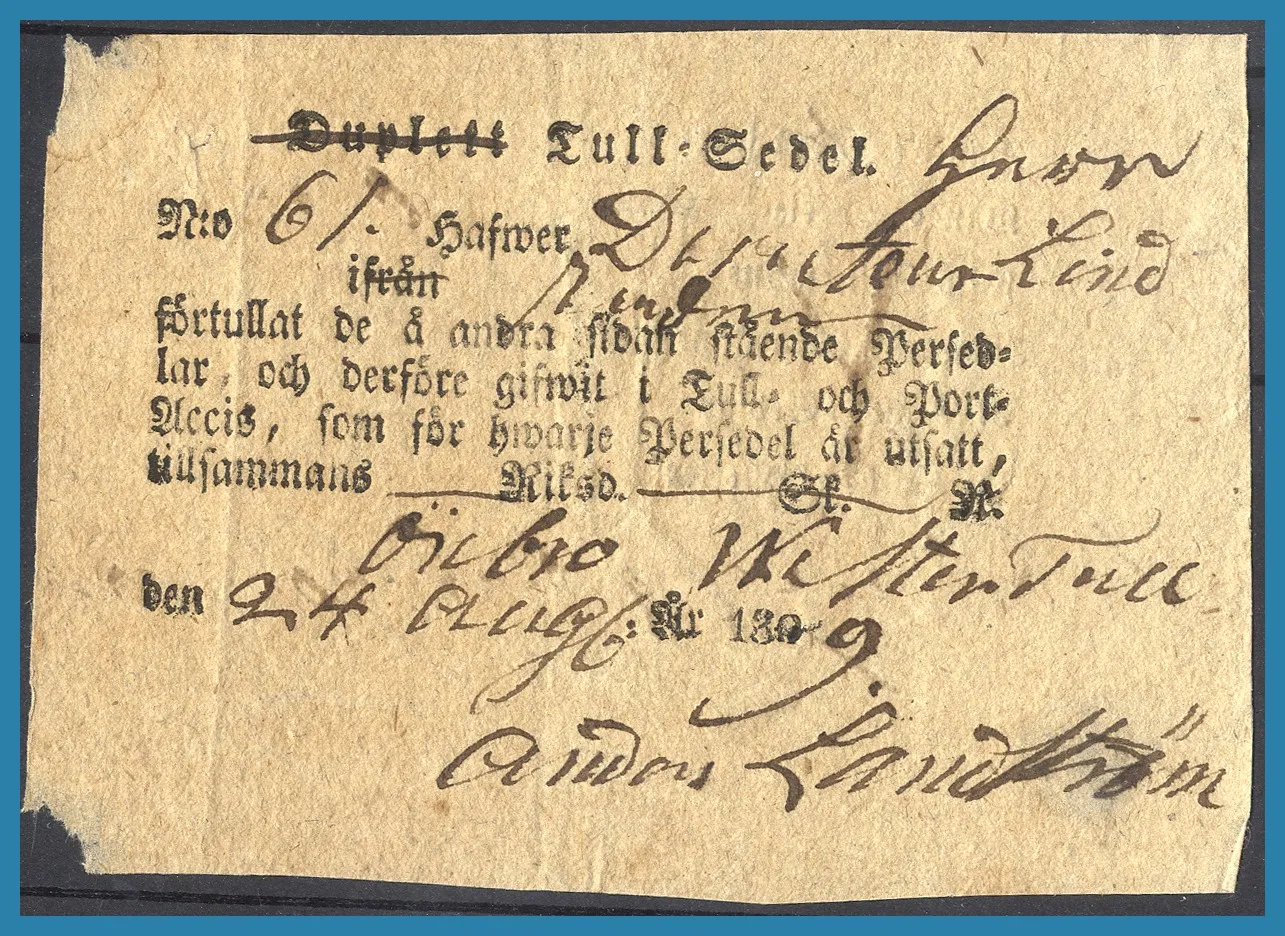 Duplett Tull-Sedel. Herr
N:o 61. Hafwer Lind
ifrån
förtullat de å andra sidan stående Persed-
lar, och derföre gifwit i Tull- och Port-
Accis, som för hwarje Persedel är utsatt,
tillsammans — Riksd. — Sk. — R.
Örebro Wester Tull
den 24 Aug: År 180 9.
Landström